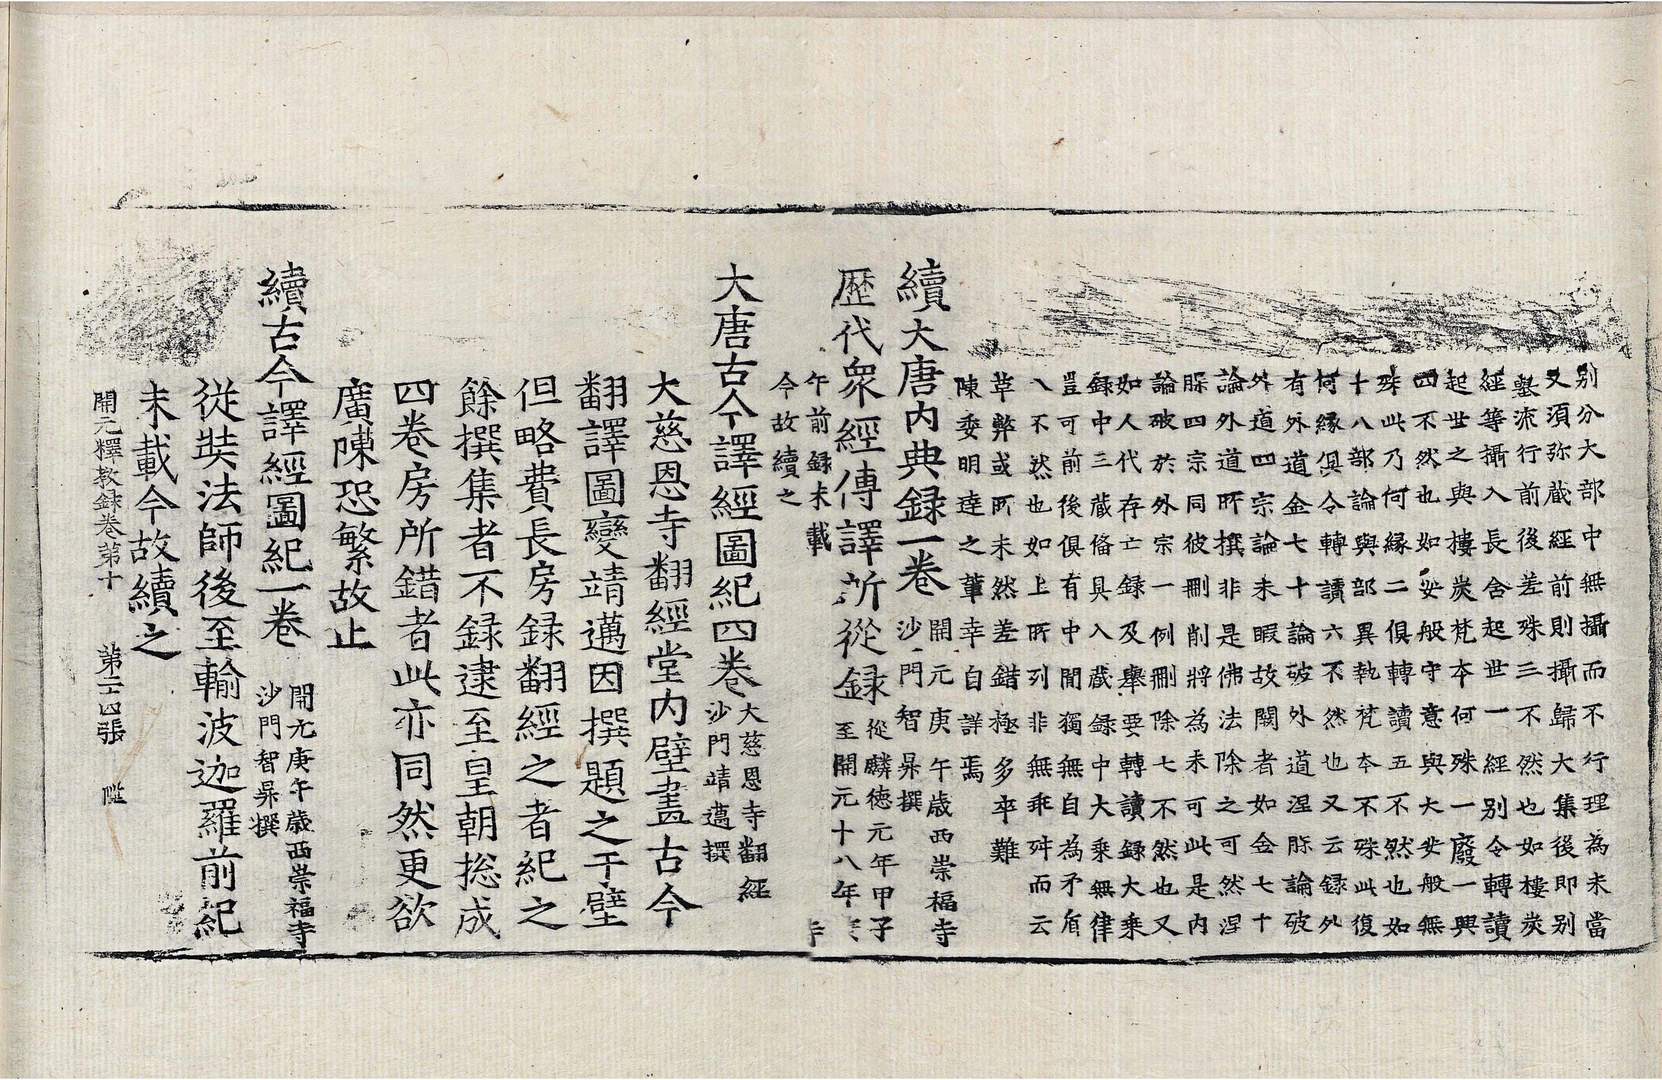 別分大部中無攝而不行理為未當
又須弥蔵經前則攝歸大集後即別
墼流行前後差殊三不然也如樓炭
經等攝入長舍起世一經別令轉讀
起世之與樓炭梵本何殊一廢一興
四不然也如㚢般守意與大㚢般無
殊此乃何緣二俱轉讀五不然也如
十八部論與部異執梵本不殊此復
何緣俱令轉讀六不然也又云録外
有外道金七十論破外道涅脎論破
外道四宗論未暇故闕者如金七十
論外道所撰非是佛法除之可然涅
脎四宗同彼刪削將為未可此是内
論破於外宗一例刪除七不然也又
如人代存亡録及舉要轉讀録大乗
録中三蔵俻具入蔵録中大乗無律
豈可前後俱有中間獨無自為矛盾
八不然也如上所列非無乖舛而云
革弊或所未然差錯極多卒難
陳委明達之輩幸自詳焉
續大唐内典録一卷 開元庚午歳西崇福寺
沙門智昇撰
歷代衆經傳譯所從録 從麟徳元年甲子
至開元十八年
午前録未載
今故續之
大唐古今譯經圖紀四卷 大慈恩寺翻經
沙門靖邁撰
大慈恩寺翻經堂内壁畫古今
翻譯圖變靖邁因撰題之于壁
但略費長房録翻經之者紀之
餘撰集者不録逮至皇朝捴成
四卷房所錯者此亦同然更欲
廣陳恐繁故止
續古今譯經圖紀一卷 開元庚午歳西崇福寺
沙門智昇撰
從奘法師後至輸波迦羅前紀
未載今故續之
開元釋教録卷第十 第二十四張